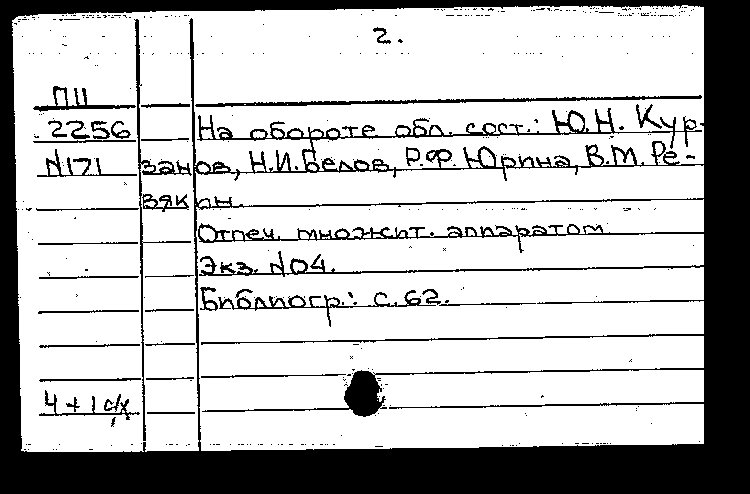 2.
П11
2256 На обороте обл. сост.: Ю.Н. Кур-
N171 занов, Н.И.Белов, Р.Ф.Юрина, В.М. Ре-
вякин.
Отпеч. множит. аппаратом
Экз. N04.
Библиогр.: с. 62.
4+1